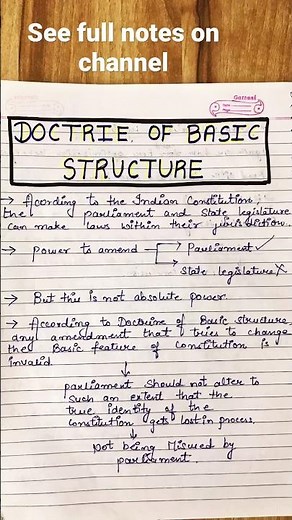 See full notes on
channel
DOCTRIE OF BASIC
STRUCTURE
→ According to the Indian Constitution,
the parliament and State legislature
can make laws within their jurisdiction.
→ power to amend → Parliament ✓
→ State legislature X
→ But this is not absolute power.
→ According to Doctrine of Basic structure,
any amendment that tries to change
the Basic feature of Constitution is
invalid
↓
parliament should not alter to
such an extent that the
true identity of the
constitution gets lost in process.
↓
Not being Misused by
parliament.